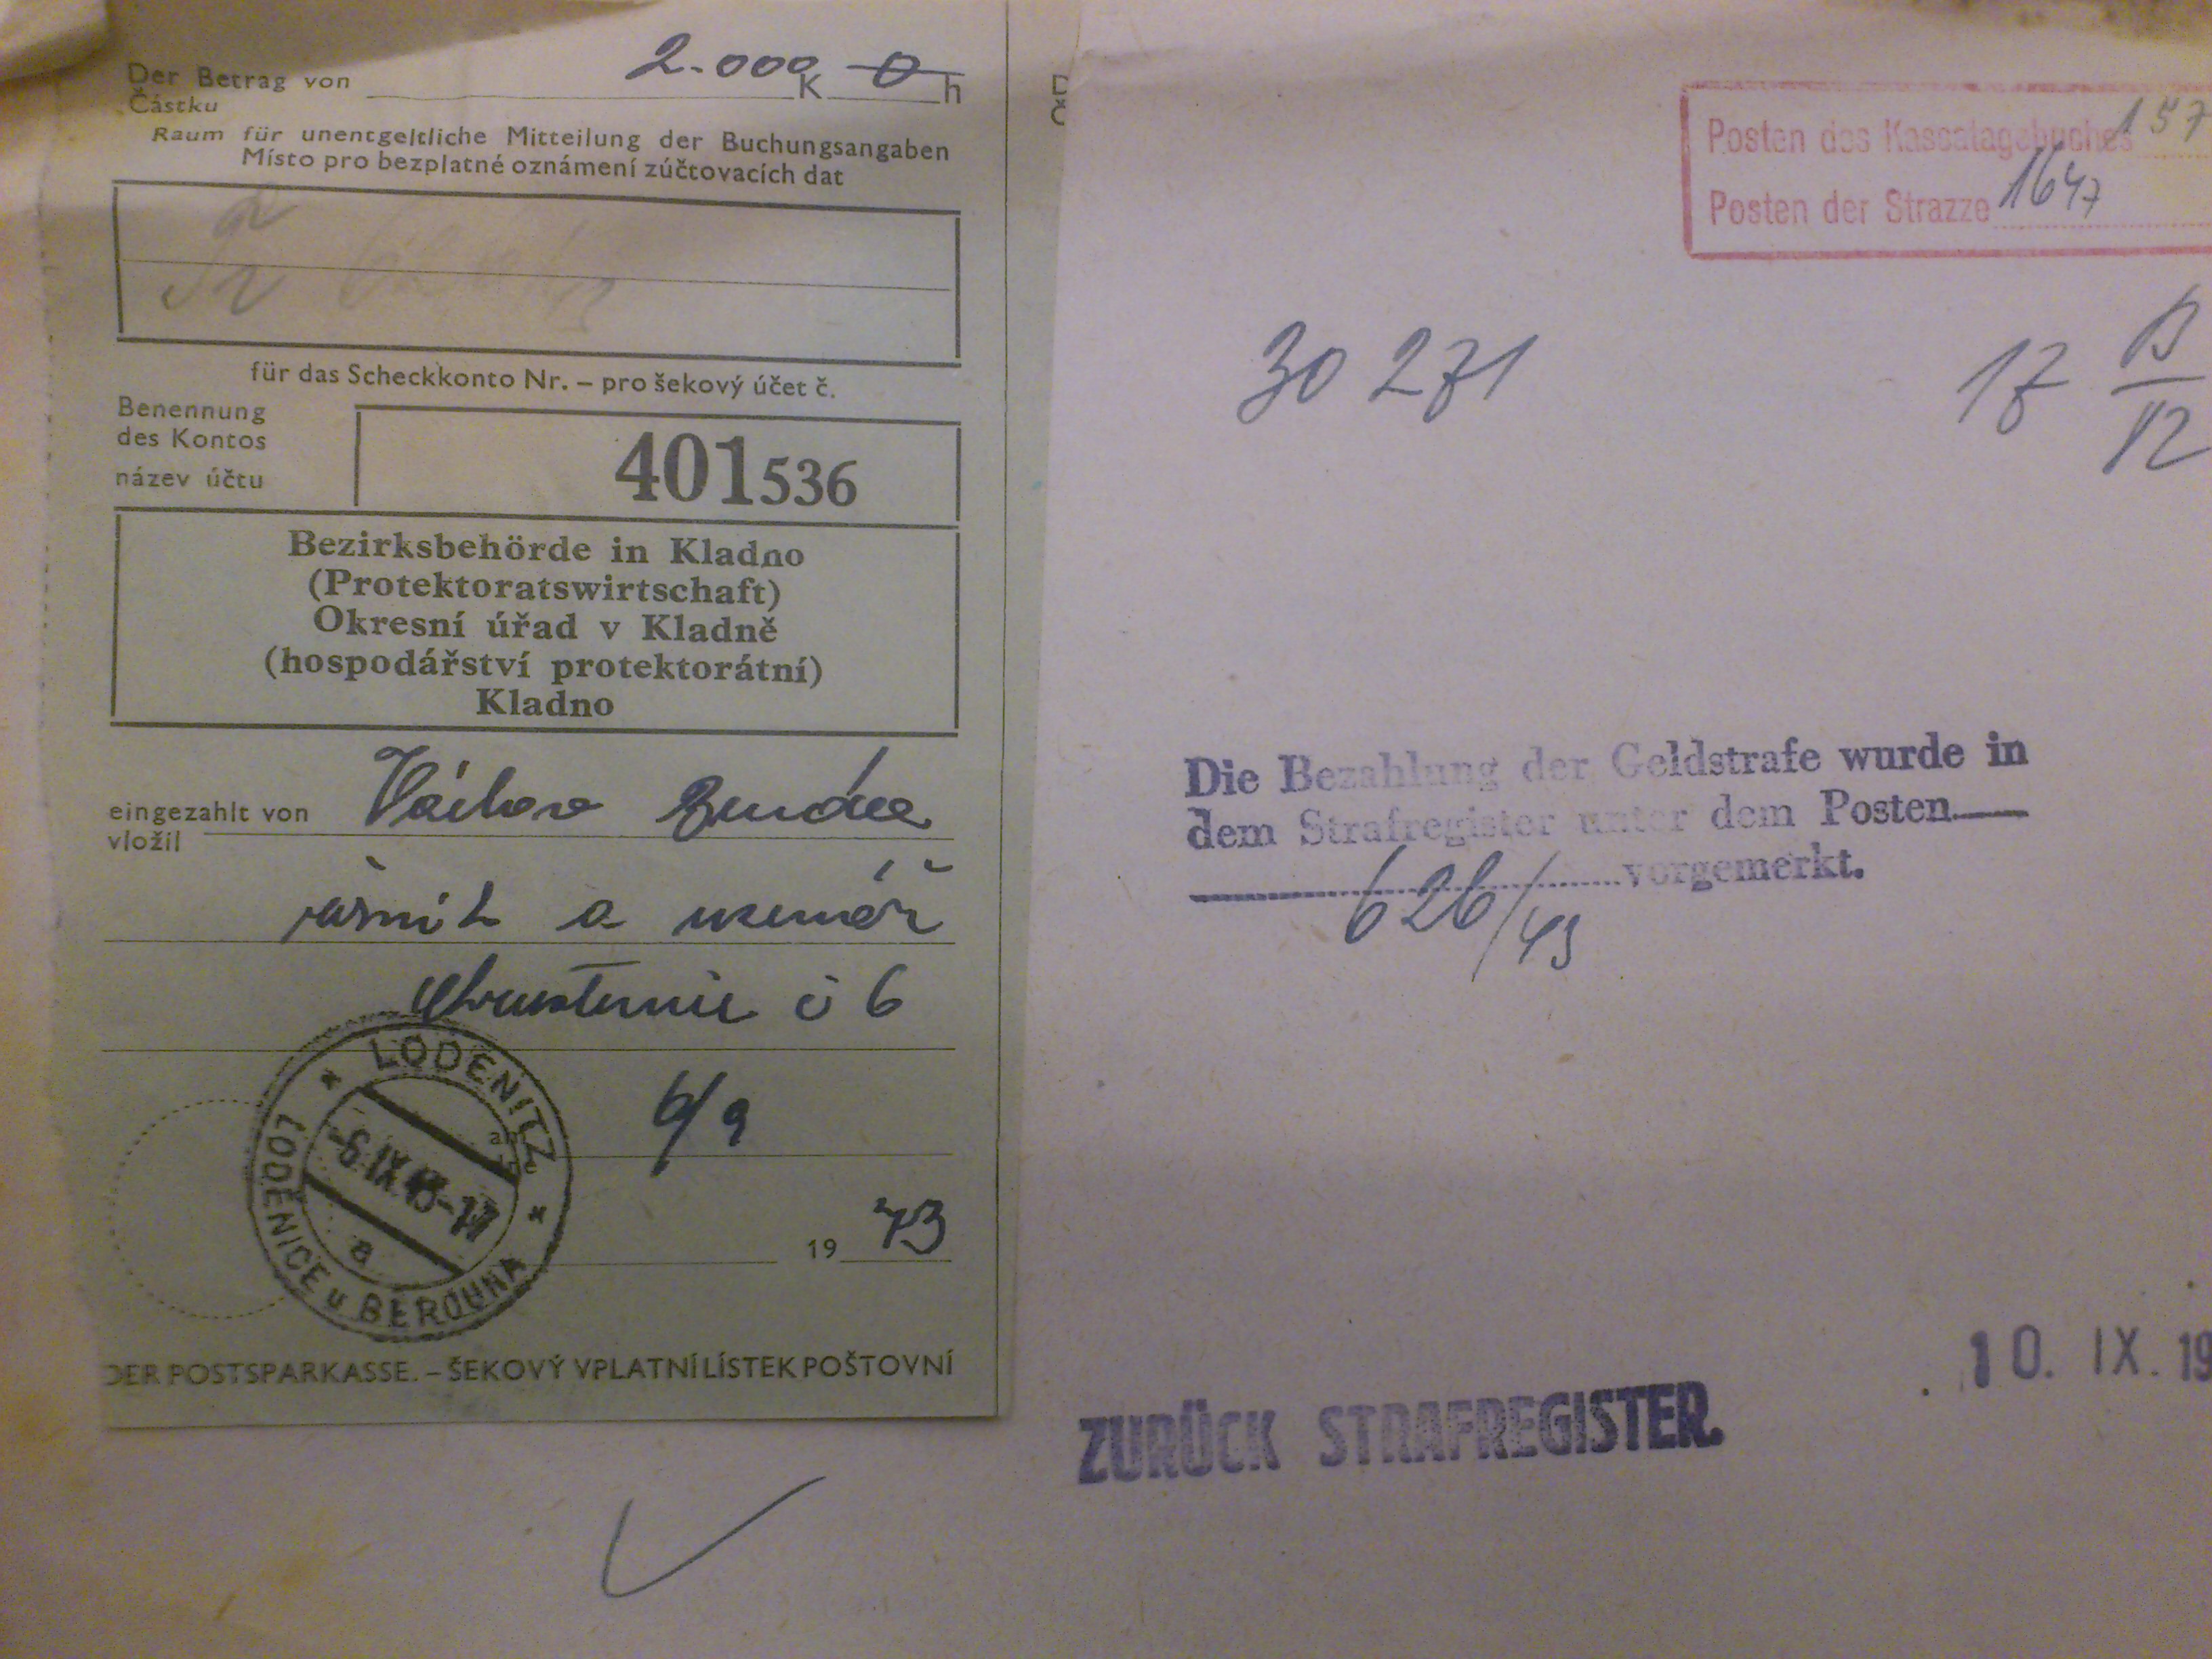 Der Betrag von 2.000 K 0 h
Částku
Raum für unentgeltliche Mitteilung der Buchungsangaben
Místo pro bezplatné oznámení zúčtovacích dat
für das Scheckkonto Nr. – pro šekový účet č.
Benennung
des Kontos
název účtu
401536
Bezirksbehörde in Kladno
(Protektoratswirtschaft)
Okresní úřad v Kladně
(hospodářství protektorátní)
Kladno
eingezahlt von Václav
vložil
řezník a uzenář
Chrustenice č 6
LODENITZ
LODĚNICE u BEROUNA
-6.IX.43-17
a
am 6/9
19 43
DER POSTSPARKASSE. – ŠEKOVÝ VPLATNÍ LÍSTEK POŠTOVNÍ
Posten des Kassatagebuches 157
Posten der Strazze 1647
30 271
17
Die Bezahlung der Geldstrafe wurde in
dem Strafregister unter dem Posten
626/43 vorgemerkt.
10. IX. 19
ZURÜCK STRAFREGISTER.